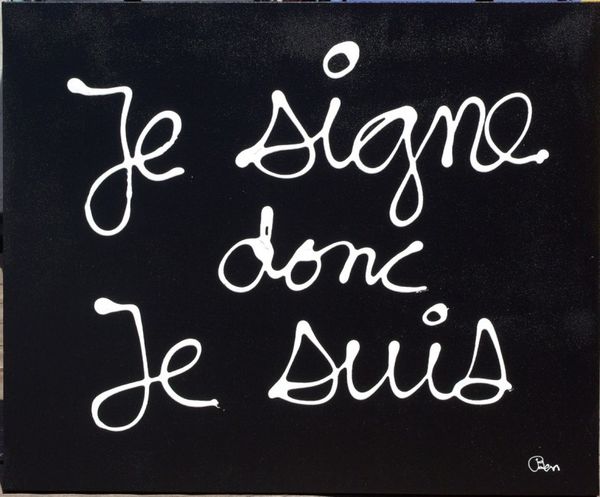 Je signe
donc
Je suis
Ben